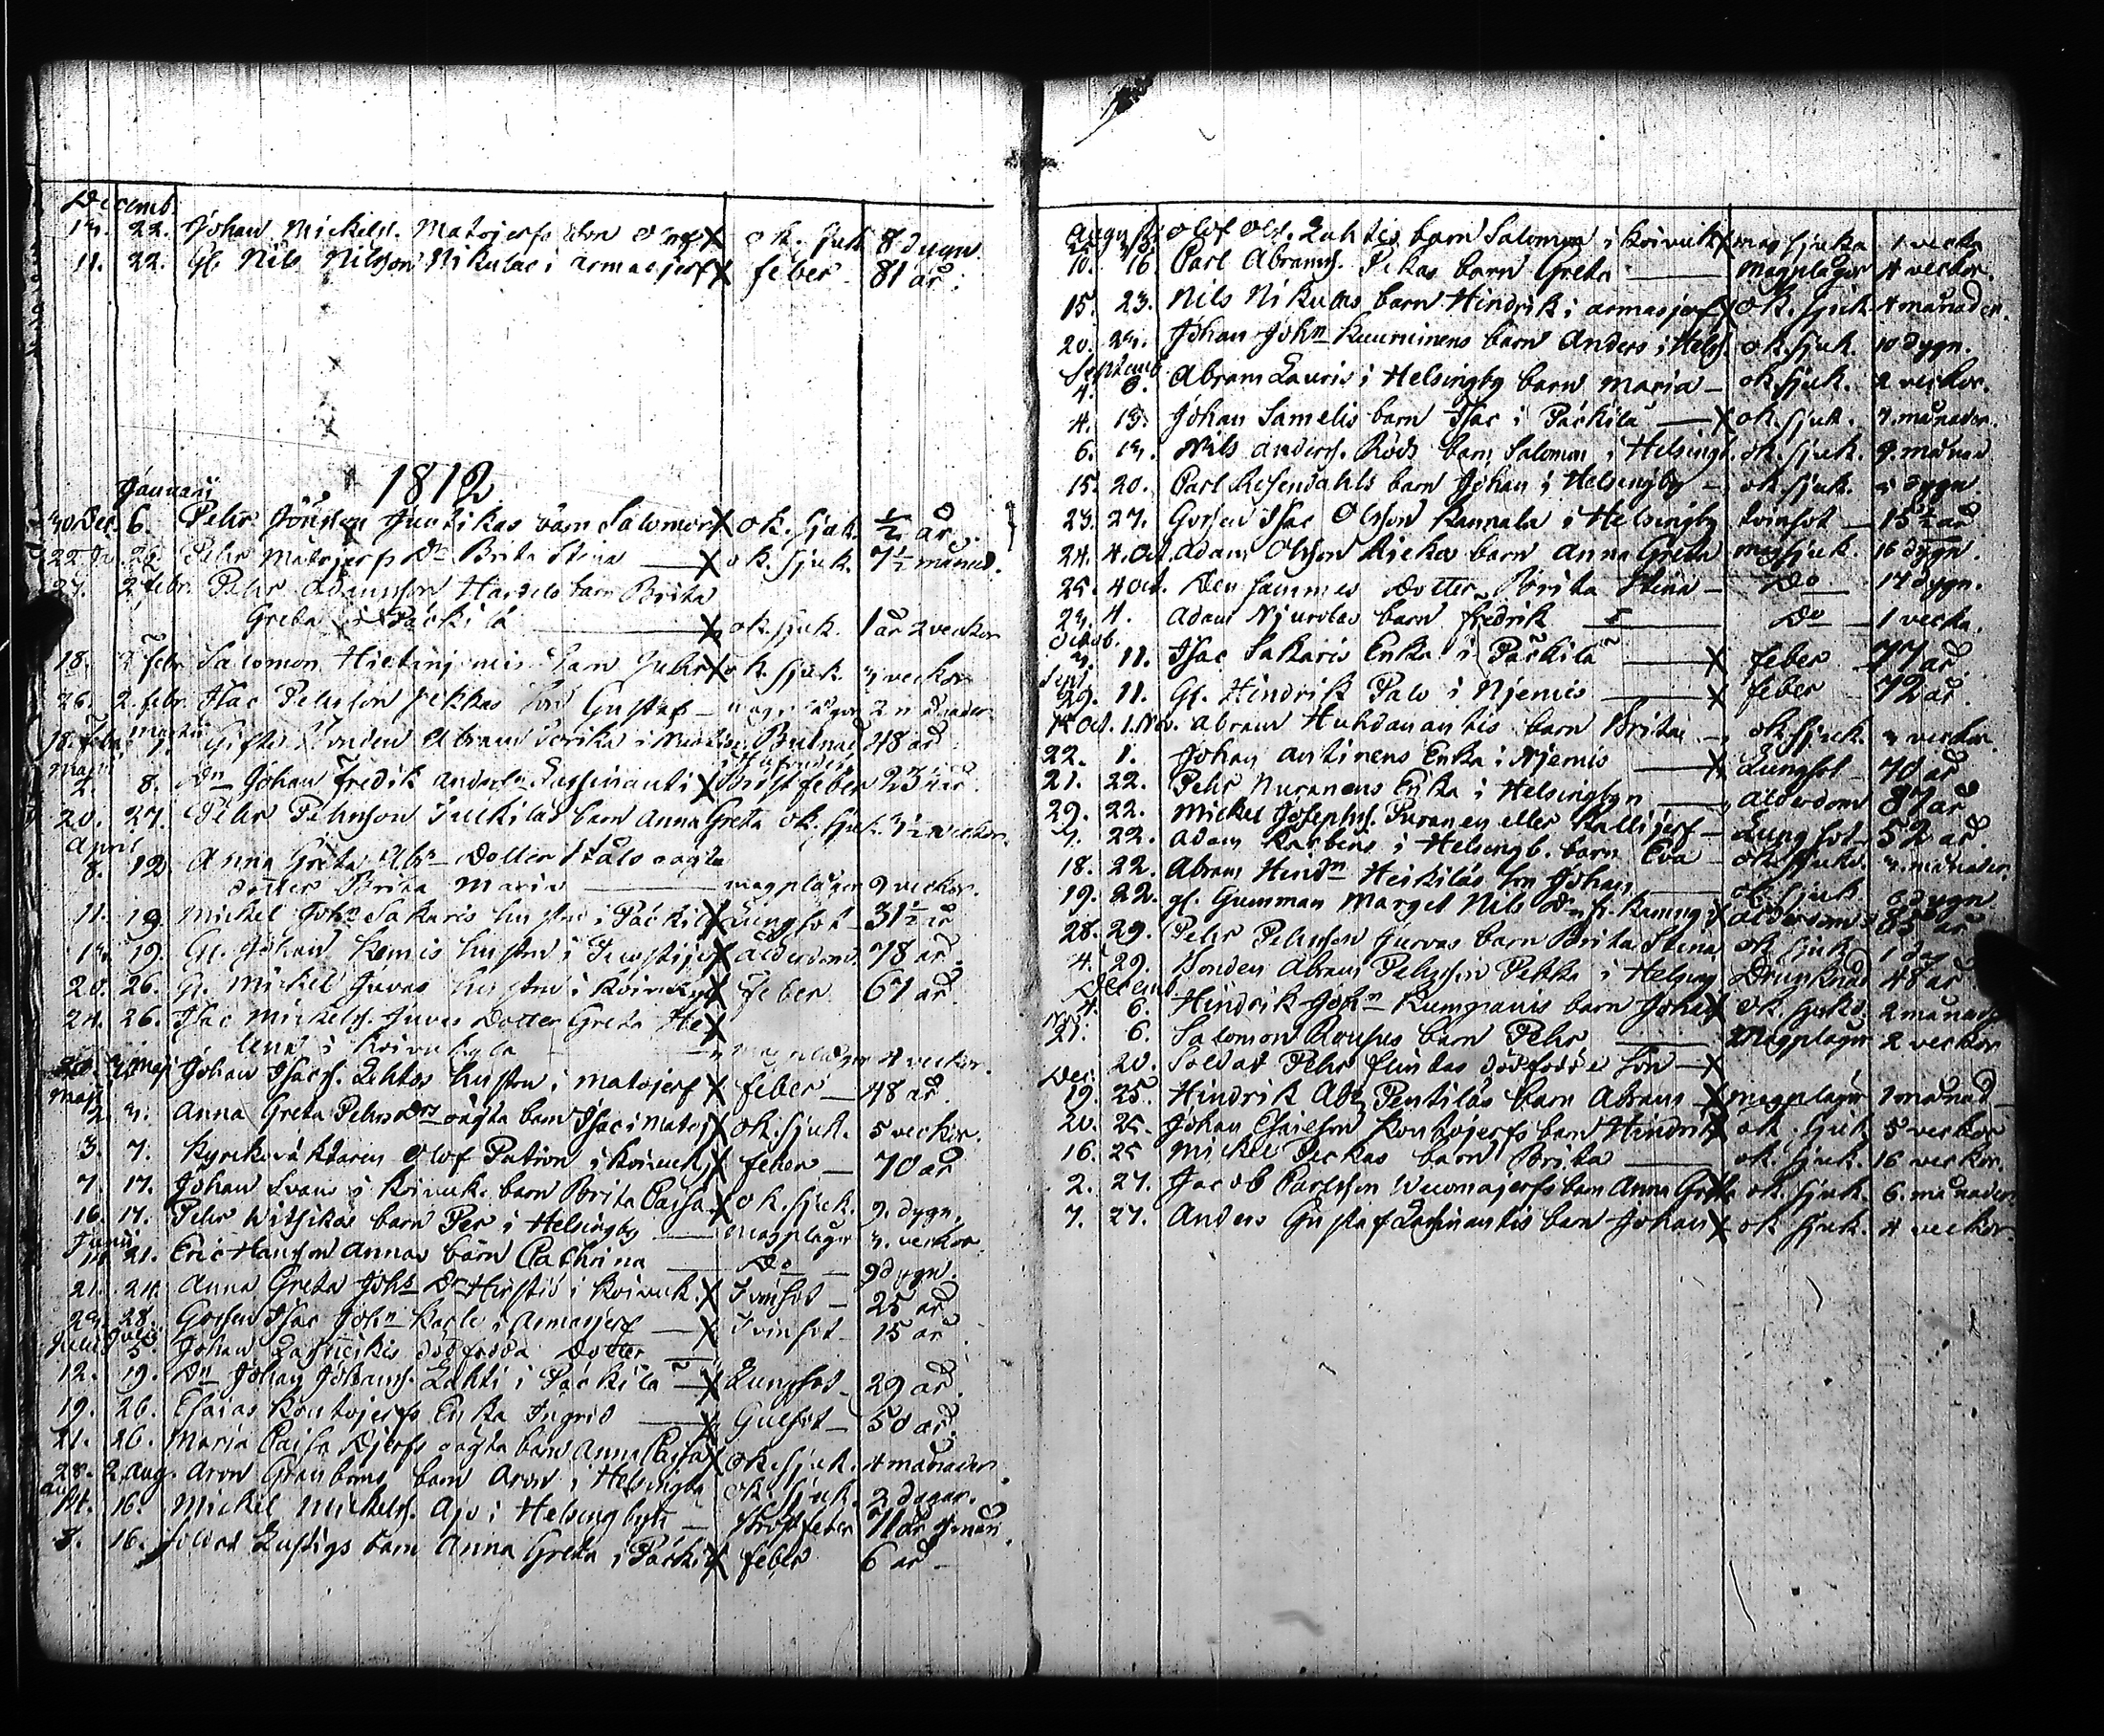 Decemb.
13. 22. Johan Mickels. Matojerfs barn X ok. sjuk 8 dygn
11. 22. Gl. Nils Nilsson Nikulas i armasjerf X feber 81 år.
1812
Januarii
30 Dec. 6. Pehr Jönsson Juntikas barn Salomon X ok. sjuk. ½ år.
22 22 Pehr Matojerfs Dr Brita Stina — X ok. sjuk. 7½ månad.
27. 2 febr. Pehr Adamsson Hardels barn Brita
Greta i Päckilä — X ok. sjuk. 1 år 2 veckor
18. 2 febr. Salomon Hietanjemis barn X ok. sjuk. 3 veckor
26. 2. febr. Isac Pehrsson Pekkas son Gustaf — magplågor 2 månader
18. febr. martii 1. Gifte Bonden Abram i 48 år
martii 2. 8. Dn Johan Fredik Anders Lassinanti X Bröstfeber 23½ år.
20. 27. Pehr Pehrsson Päckiläs barn Anna Greta ok. sjuk. 3½ veckor.
April
8. 12. Anna Greta Abr. Dotter Ståls oägta
dotter Brita Maria — magplågor 9 veckor.
11. 19. Mickel Johs Sakaris hustru i Päckilä X Lungsot 31½ år
13. 19. Gl. Johan Kemis hustru i X ålderdom. 78 år.
20. 26. Gl. Mickel Juvas hustru i Koivuky X feber 67 år.
24. 26. Isac Mickels. Juvas Dotter Greta He X
lena i Koivukyla — magplågor 4 veckor.
3 Maj Johan Isacs. Lehtos hustru i matojerf X feber — 48 år.
Maji
2. 3. Anna Greta Pehrs Drs oägta barn Isac i Matoj X ok. sjuk. 5 veckor.
3. 7. Kyrkováktaren Olof Patron i Koivuky X feber — 70 år
7. 17. Johan Svans i Koivuk. barn Brita Caisa X ok. sjuk. 9. dygn.
16. 17. Pehr Witsikas barn Per i Helsingby — magplågor 3. veckor.
Junii
14. 21. Eric Hansson Annas barn Cathrina — Do — 9 dygn.
21. 24. Anna Greta Johs Dr Hirstiö i Koivuk. X Tvinsot — 25 år
23. 28. Gossen Isac John Karle i Armasjerf — X Tvinsot 15 år
Julii 5. Johan dödfödda Dotter —
12. 19. Dn Johan Johans. Lahti i Päckilä — X Lungsot 29 år.
19. 26. Esaias Kontojerfs Enka Ingrid — X Gulsot — 50 år.
21. 26. Maria Caisa Djerfs oägta barn Anna Caisa X ok. sjuk. 4 månader.
28. 2 Aug. Aron Granboms barn Aron i Helsingby ok. sjuk. 2 dagar.
16. Mickel Mickels. Ajo i Helsingbyn — Bröstfeber 71 år 9 mån.
8. 16. Soldat Lustigs barn Anna Greta i Päcki X feber 6 år —
Augusti Olof Ols. Lahtis barn Salomon i Koivuk X magsjuka 1 vecka
10. 16 Carl Abrams. Pekas barn Greta — magplågor 4 veckor.
15. 23. Nils Nikulas barn Hindrik i armasjerf X ok. sjuk 4 månader.
20. 23. Johan John Kuurinens barn Anders i Hels. ok. sjuk. 10 dygn.
Septemb
4. 6. Abram Lauris i Helsingby barn Maria — ok sjuk. 2 veckor.
4. 13. Johan Samelis barn Isac i Päckilä — X ok. sjuk. 7. månader.
6. 13. Nils Anders. Röds barn Salomon i Helsingb. ok. sjuk. 9. månad
15. 20. Carl Rosendahls barn Johan i Helsingby — ok sjuk. 5 dygn.
23. 27. Gossen Isac Olsson Kannala i Helsingby tvinsot — 15½ år
24. 4. Oct. Adam Olsson Riekas barn Anna Greta magsjuk. 16 dygn.
25. 4 Oct. Den sammes Dotter Brita Stina — Do — 17 dygn.
23. 4. Adam Njurolas barn Fredrik — Do — 1 vecka.
Octob.
3. 11. Isac Sakaris Enka i Päckilä — X feber — 77 år
Sept
29. 11. Gl. Hindrik Palo i Njemis — X feber — 72 år.
1. Nov. Abram Huhdanantis barn Brita — ok sjuk 3 veckor.
22. 1. Johan Antinens Enka i Njemis — X Lungsot — 70 år
21. 22. Pehr Nuranens Enka i Helsingbyn — ålderdom 87 år
29. 22. Mickel Josephs. Puranen eller Kallijerf — Lungsot — 52 år.
7. 22. Adam Karbens i Helsingb. barn Eva — ok sjuk. 3. månader.
18. 22. Abram Hindn Heikiläs son Johan — ok sjuk 6 dygn
19. 22. gl. Gumman Marget Nils Dr fr. Kaunng X ålderdom 85 år
28. 29. Pehr Pehrsson Juvas barn Brita Stina ok sjuk 1 dag
4. 29. Bonden Abram Pehrsson Pekka i Helsing Drunknad 48 år
Decemb
4. 6. Hindrik John Kumpanis barn Johan X ok. sjuk. 2 månad
Nov
21. 6. Salomon Rousus barn Pehr — Magplågor 2 veckor
20. Soldat Pehr Flinkas dödfödde son — X
Dec.
19. 25. Hindrik Abr. Pentiläs barn Abram — X magplågor 1 månad
20. 25. Johan Esaiesson Kontojerfs barn Hindrik X ok. sjuk 5 veckor
16. 25 Mickel Peckas barn Brita — ok. sjuk. 16 veckor.
2. 27. Jacob Carlsson Wuomajerfs barn Anna Greta ok. sjuk. 6. månader
7. 27. Anders Gustaf Lassinantis barn Johan X ok sjuk. 4 veckor.